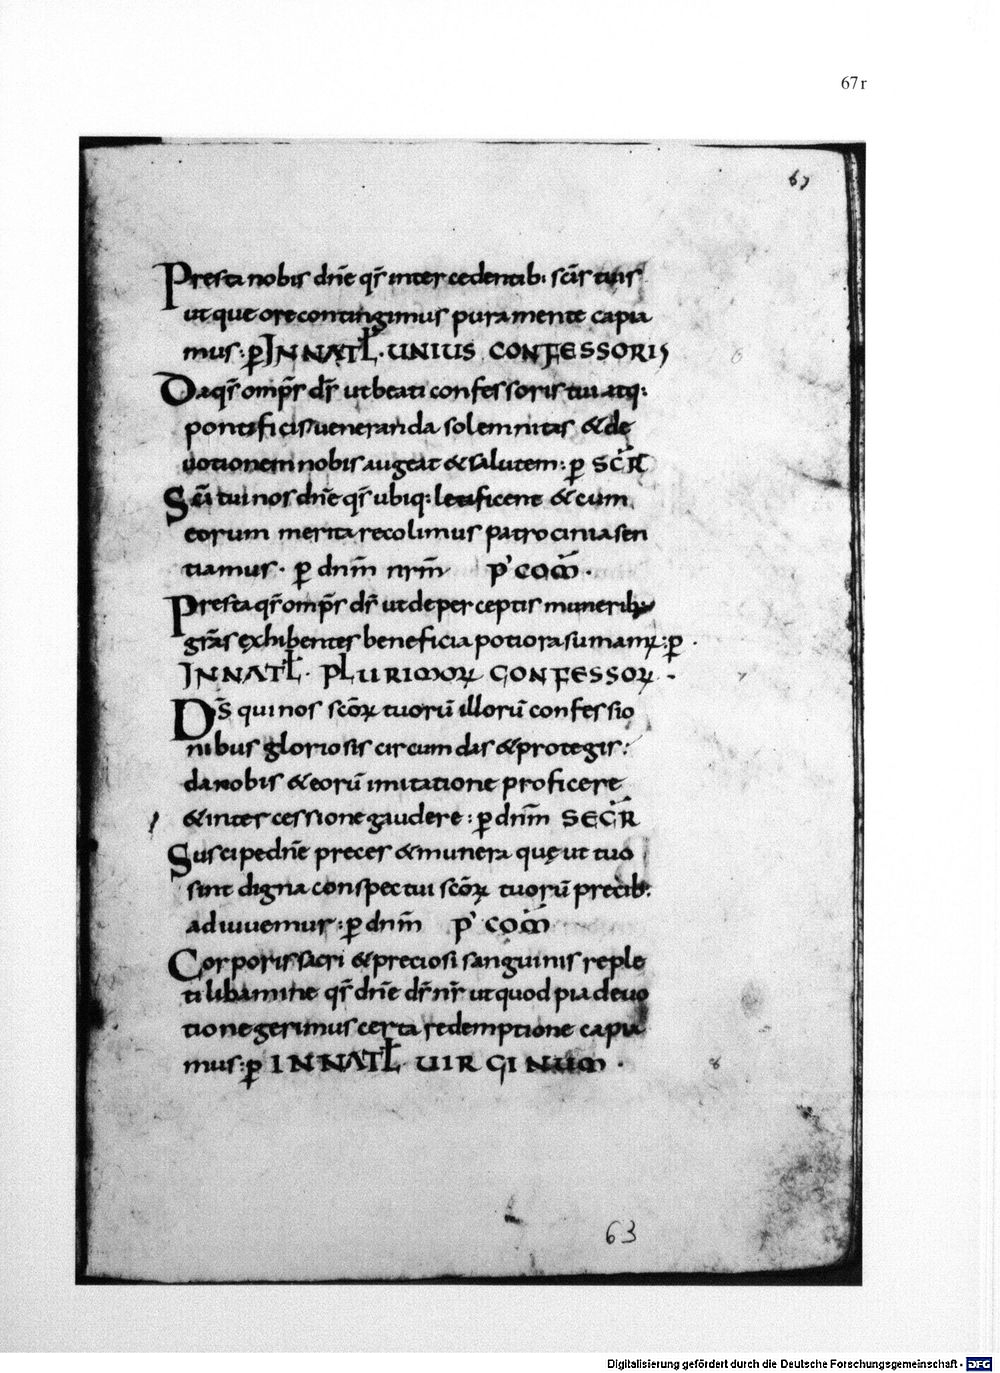 67r
67
Presta nobis dn̄e qs̄ intercedentib; scīs tuis
ut que ore contingimus pura mente capia
mus: ꝑ IN NATL̄. UNIUS CONFESSORIS
Da qs̄ omp̄s ds̄ ut beati confessoris tui atq:
pontificis ueneranda solemnitas & de
uotionem nobis augeat & salutem: ꝑ SCR̄
Scī tui nos dn̄e qs̄ ubiq: letificent & cum
eorum merita recolimus patrocinia sen
tiamus. ꝑ dnm̄ nrm̄ p' COM̄.
Presta qs̄ omp̄s ds̄ ut de perceptis munerib;
grās exhibentes beneficia potiora sumamꝰ: ꝑ.
IN NATL̄. PLURIMOꝜ CONFESSOꝜ.
Ds̄ qui nos scōꝝ tuorū illorū confessio
nibus gloriosis circumdas & protegis:
da nobis & eorū imitatione proficere
& intercessione gaudere: ꝑ dnm̄ SECR̄
Suscipe dn̄e preces & munera quę ut tuo
sint digna conspectui scōꝝ tuorū precib:
adiuuemur: ꝑ dnm̄ p' COM̄
Corporis sacri & preciosi sanguinis reple
ti libamine qs̄ dn̄e ds̄ nr̄ ut quod pia deuo
tione gerimus certa redemptione capia
mus: ꝑ IN NATL̄ UIRGINUM.
63
Digitalisierung gefördert durch die Deutsche Forschungsgemeinschaft - DFG